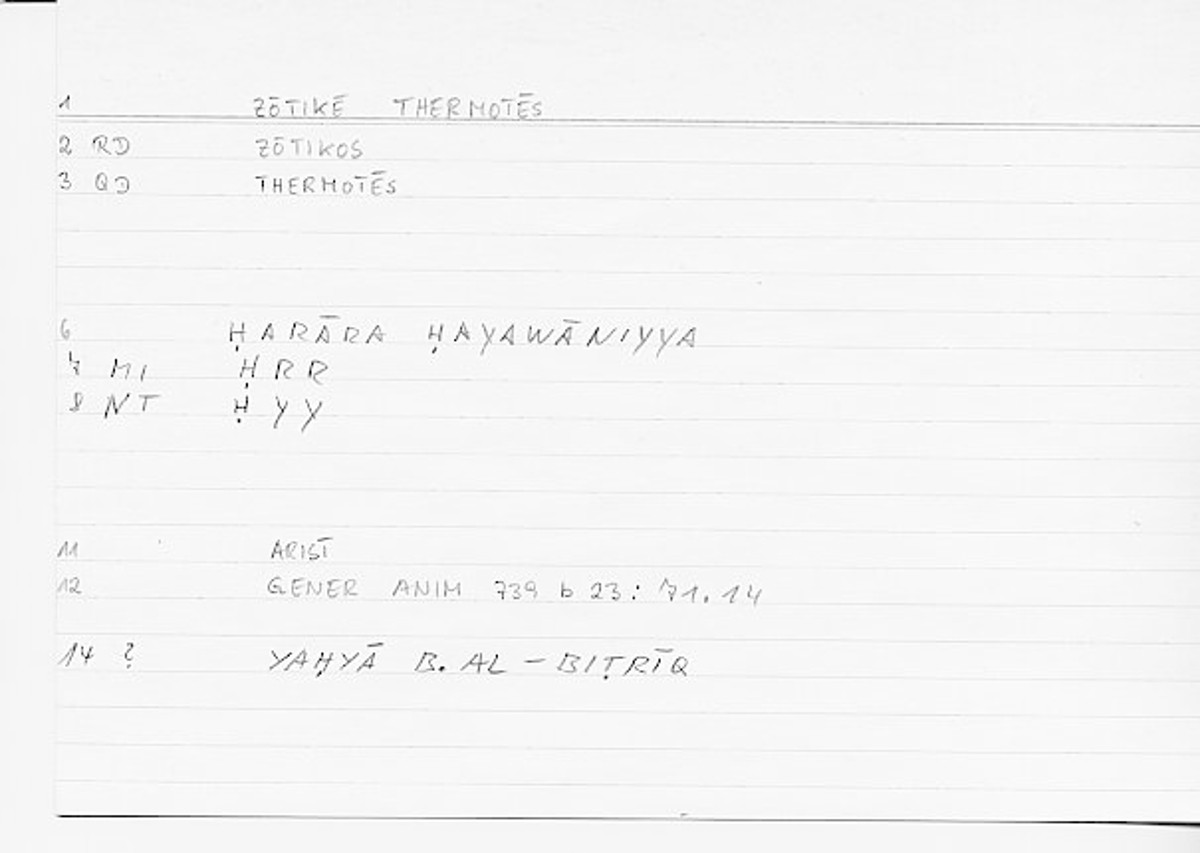 1 ZŌTIKĒ THERMOTĒS
2 RD ZŌTIKOS
3 QD THERMOTĒS
6 ḤARĀRA ḤAYAWĀNIYYA
7 MI ḤRR
8 NT ḤYY
11 ARIST
12 GENER ANIM 739 b 23: 71.14
14 ? YAḤYĀ B. AL-BIṬRĪQ